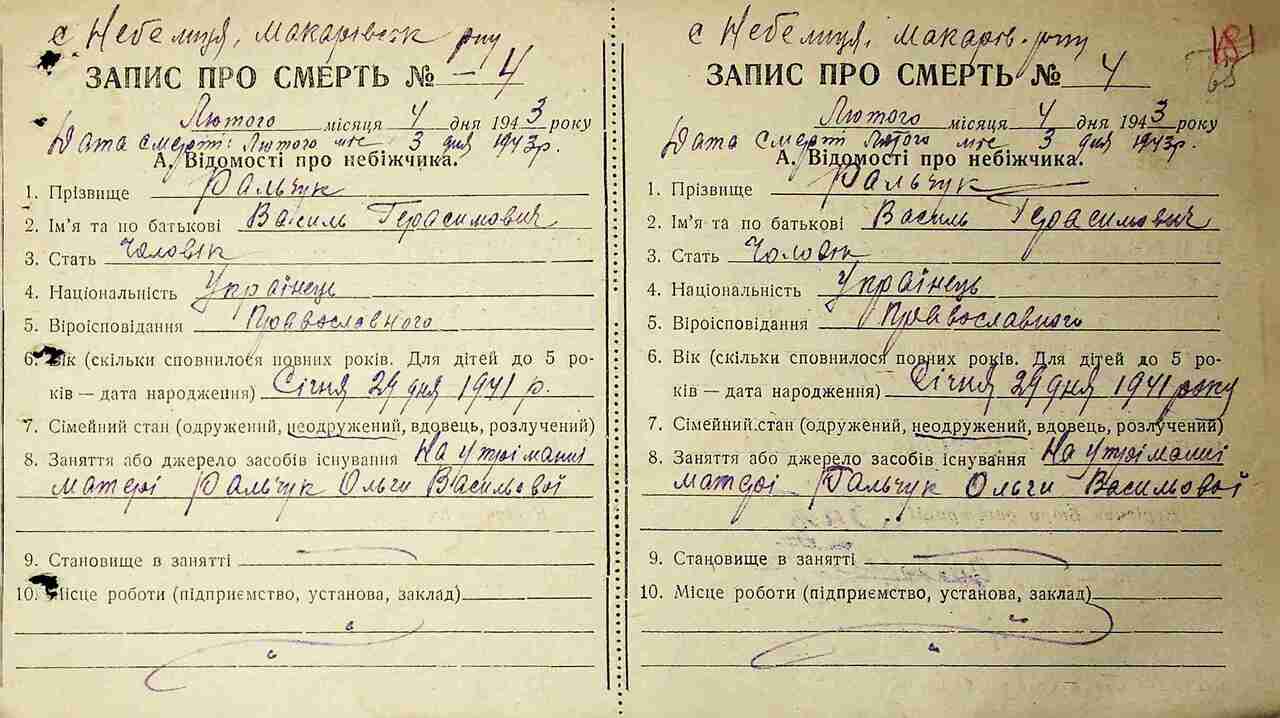 с Небелиця, макарівськ рну
ЗАПИС ПРО СМЕРТЬ № – 4
Лютого місяця 4 дня 1943 року
Дата смерті: Лютого м-це 3 дня 1943р.
А. Відомості про небіжчика.
1. Прізвище Бальчук
2. Ім’я та по батькові Василь Герасимович
3. Стать Чоловік
4. Національність Українець
5. Віроісповідання Православного
6. Вік (скільки сповнилося повних років. Для дітей до 5 ро-
ків — дата народження) Січня 29 дня 1941 р.
7. Сімейний стан (одружений, неодружений, вдовець, розлучений)
8. Заняття або джерело засобів існування На утріманні
матері Бальчук Ольги Васильової
9. Становище в занятті
10. Місце роботи (підприємство, установа, заклад)
с Небелиця, макарів. рну
181
65
ЗАПИС ПРО СМЕРТЬ № 4
Лютого місяця 4 дня 1943 року
Дата смерті Лютого м-це 3 дня 1943р.
А. Відомості про небіжчика.
1. Прізвище Бальчук
2. Ім’я та по батькові Василь Герасимович
3. Стать Чоловік
4. Національність Українець
5. Віроісповідання Православного
6. Вік (скільки сповнилося повних років. Для дітей до 5 ро-
ків — дата народження) Січня 29 дня 1941 року
7. Сімейний стан (одружений, неодружений, вдовець, розлучений)
8. Заняття або джерело засобів існування На утріманні
матері Бальчук Ольги Васильової
9. Становище в занятті
10. Місце роботи (підприємство, установа, заклад)